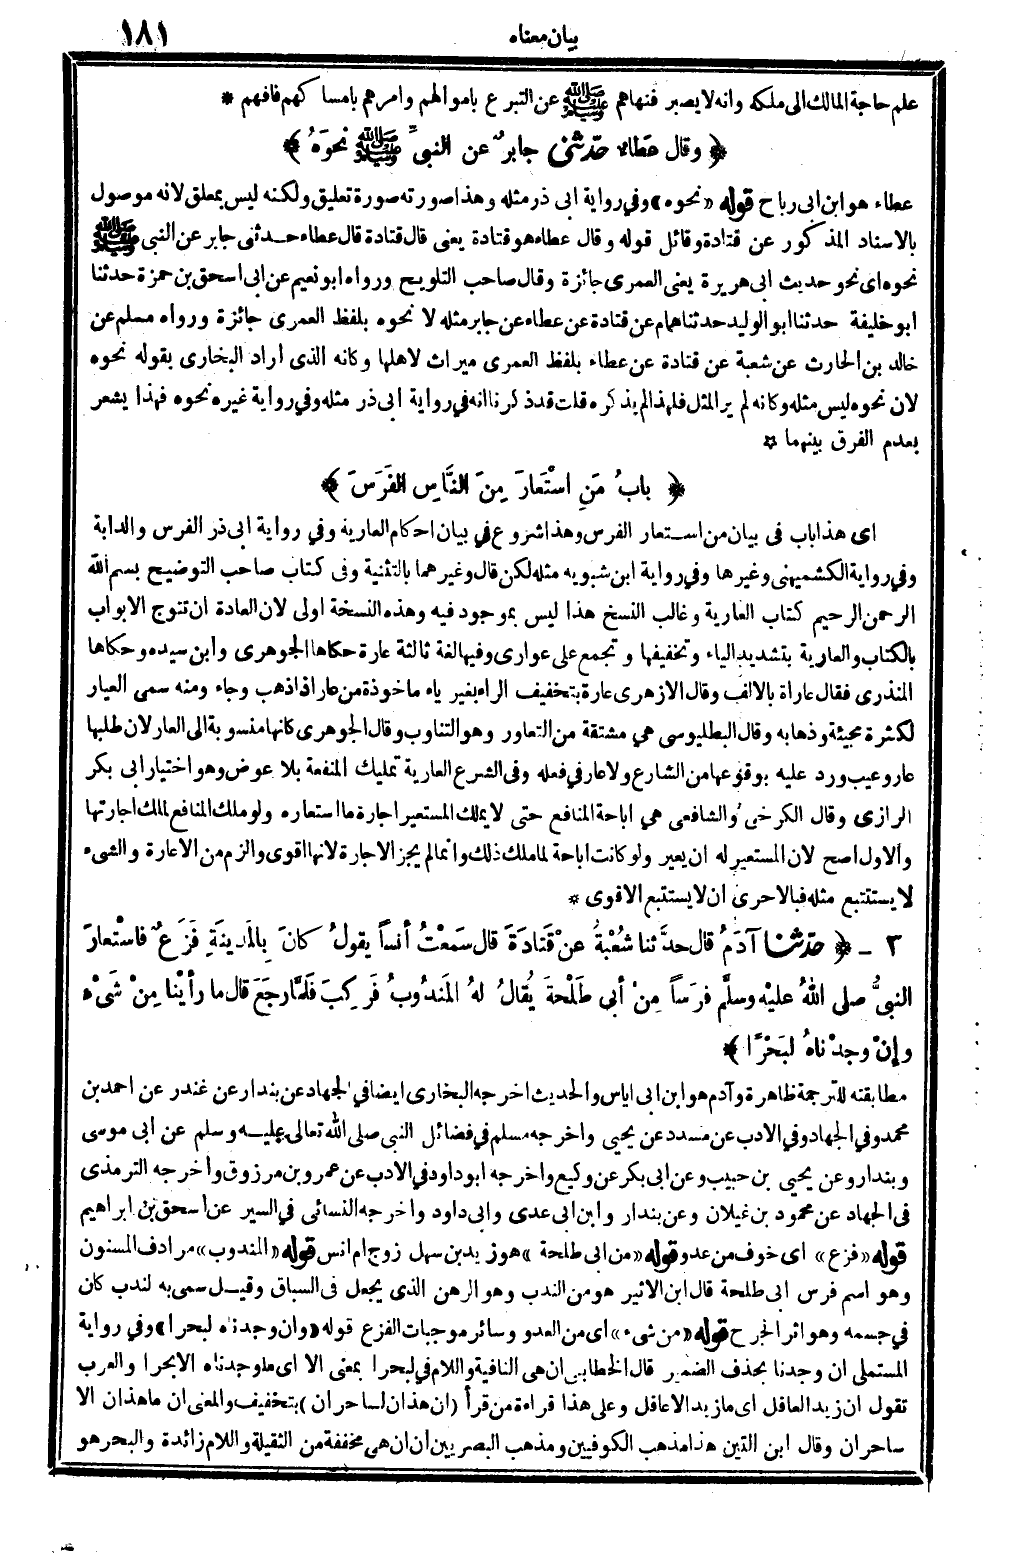 بيان معناه ١٨١
علم حاجة المالك الى ملكه وانه لا يصبر فنهاهم ﷺ عن التبرع باموالهم وامرهم بامساكهم فافهم *
﴿ وقال عطاء حدثني جابر عن النبي ﷺ نحوه ﴾
عطاء هو ابن ابى رباح قوله «نحوه» وفي رواية ابى ذر مثله وهذا صورته صورة تعليق ولكنه ليس بمعلق لانه موصول
بالاسناد المذكور عن قتادة وقائل قوله وقال عطاء هو قتادة يعنى قال قتادة قال عطاء حدثنى جابر عن النبى ﷺ
نحوه اى نحو حديث ابى هريرة يعنى العمرى جائزة وقال صاحب التلويح ورواه ابو نعيم عن ابى اسحق بن حمزة حدثنا
ابو خليفة حدثنا ابو الوليد حدثنا همام عن قتادة عن عطاء عن جابر مثله لا نحوه بلفظ العمرى جائزة ورواه مسلم عن
خالد بن الحارث عن شعبة عن قتادة عن عطاء بلفظ العمرى ميراث لاهلها وكانه الذى اراد البخارى بقوله نحوه
لان نحوه ليس مثله وكانه لم ير المثل فلهذا لم يذكره قلت قد ذكرنا انه في رواية ابى ذر مثله وفي رواية غيره نحوه فهذا يشعر
بعدم الفرق بينهما *
﴿ بابُ مَنِ اسْتَعارَ مِنَ النَّاسِ الفَرَسَ ﴾
اى هذا باب فى بيان من استعار الفرس وهذا شروع في بيان احكام العارية وفي رواية ابى ذر الفرس والدابة
وفي رواية الكشميهنى وغيرها وفي رواية ابن شبويه مثله لكن قال وغيرهما بالتثنية وفى كتاب صاحب التوضيح بسم الله
الرحمن الرحيم كتاب العارية وغالب النسخ هذا ليس بموجود فيه وهذه النسخة اولى لان العادة ان تتوج الابواب
بالكتاب والعارية بتشديد الياء وتخفيفها وتجمع على عوارى وفيها لغة ثالثة عارة حكاها الجوهرى وابن سيده وحكاها
المنذرى فقال عاراة بالالف وقال الازهرى عارة بتخفيف الراء بغير ياء ماخوذة من عار اذا ذهب وجاء ومنه سمى العيار
لكثرة مجيئة وذهابه وقال البطليوسى هي مشتقة من التعاور وهو التناوب وقال الجوهرى كانها منسوبة الى العار لان طلبها
عار وعيب ورد عليه بوقوعها من الشارع ولا عار في فعله وفى الشرع العارية تمليك المنفعة بلا عوض وهو اختيار ابى بكر
الرازى وقال الكرخى والشافعى هي اباحة المنافع حتى لا يملك المستعير اجارة ما استعاره ولو ملك المنافع لملك اجارتها
والاول اصح لان المستعير له ان يعير ولو كانت اباحة لما ملك ذلك وانما لم يجز الاجارة لانها اقوى والزم من الاعارة والشىء
لا يستتبع مثله فبالاحرى ان لا يستتبع الاقوى *
٣ ـ ﴿ حدثنا آدَمُ قال حدَّثنا شُعْبَةُ عنْ قَتادَةَ قال سَمعْتُ أنَساً يقولُ كانَ بِالمَدينَةِ فَزَعٌ فاستْعارَ
النبىُّ صلى اللهُ عليْه وسلَّم فرَساً مِنْ أبى طَلْحةَ يُقالُ لهُ المَندُوبُ فَركِبَ فَلمَّا رجَعَ قال ما رأيْنا مِنْ شَىْء
وإنْ وجدْناهُ لبَحْرًا ﴾
مطابقته للترجمة ظاهرة وآدم هو ابن ابى اياس والحديث اخرجه البخارى ايضا في الجهاد عن بندار عن غندر عن احمد بن
محمد وفي الجهاد وفي الادب عن مسدد عن يحيى واخرجه مسلم في فضائل النبى صلى الله تعالى عليه وسلم عن ابى موسى
وبندار وعن يحيى بن حبيب وعن ابى بكر عن وكيع واخرجه ابو داود في الادب عن عمرو بن مرزوق واخرجه الترمذى
فى الجهاد عن محمود بن غيلان وعن بندار وابن ابى عدى وابى داود واخرجه النسائى في السير عن اسحق بن ابراهيم
قوله «فزع» اى خوف من عدو قوله «من ابى طلحة» هو زيد بن سهل زوج ام انس قوله «المندوب» مرادف المسنون
وهو اسم فرس ابى طلحة قال ابن الاثير هو من الندب وهو الرهن الذى يجعل فى السباق وقيل سمى به لندب كان
في جسمه وهو اثر الجرح قوله «من شىء» اى من العدو وسائر موجبات الفزع قوله «وان وجدناه لبحرا» وفي رواية
المستملى ان وجدنا بحذف الضمير قال الخطابى ان هى النافية واللام في لبحرا بمعنى الا اى ما وجدناه الا بحرا والعرب
تقول ان زيد العاقل اى ما زيد الا عاقل وعلى هذا قراءة من قرأ (ان هذان لساحران) بتخفيف والمعنى ان ماهذان الا
ساحران وقال ابن التين هذا مذهب الكوفيين ومذهب البصريين ان ان هى مخففة من الثقيلة واللام زائدة والبحر هو